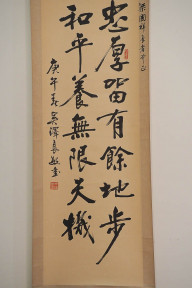 忠厚留有餘地步
和平養無限天機
庚午